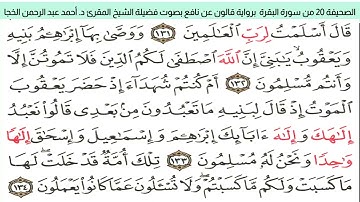 الصحيفة 20 من سورة البقرة برواية قالون عن نافع بصوت فضيلة الشيخ المقرئ د. أحمد عبد الرحمن الخجا
قَالَ أَسْلَمْتُ لِرَبِّ الْعَٰلَمِينَ ١٣١ وَأَوْصَىٰ بِهَا إِبْرَٰهِيمُ بَنِيهِ
وَيَعْقُوبُ يَٰبَنِيَّ إِنَّ اللَّهَ اصْطَفَىٰ لَكُمُ الدِّينَ فَلَا تَمُوتُنَّ إِلَّا
وَأَنتُم مُّسْلِمُونَ ١٣٢ أَمْ كُنتُمْ شُهَدَآءَ اِ۬ذْ حَضَرَ يَعْقُوبَ
الْمَوْتُ إِذْ قَالَ لِبَنِيهِ مَا تَعْبُدُونَ مِنۢ بَعْدِي قَالُوا نَعْبُدُ
إِلَٰهَكَ وَإِلَٰهَ ءَابَآئِكَ إِبْرَٰهِيمَ وَإِسْمَٰعِيلَ وَإِسْحَٰقَ إِلَٰهًا
وَٰحِدًا وَنَحْنُ لَهُ مُسْلِمُونَ ١٣٣ تِلْكَ أُمَّةٌ قَدْ خَلَتْ لَهَا
مَا كَسَبَتْ وَلَكُم مَّا كَسَبْتُمْ وَلَا تُسْـَٔلُونَ عَمَّا كَانُوا يَعْمَلُونَ ١٣٤